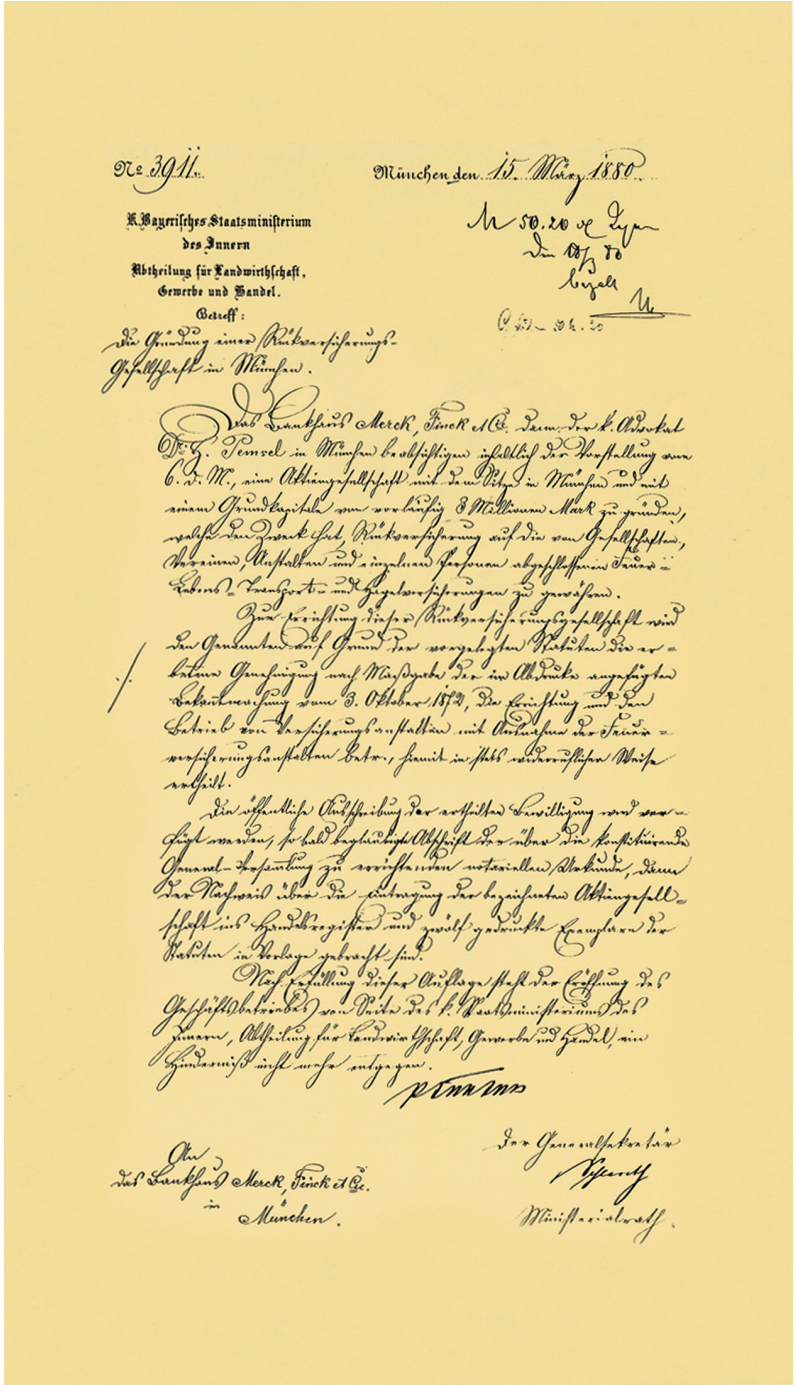 No 3911.
München den 15. März 1880.
K. Bayerisches Staatsministerium
des Innern
Abtheilung für Landwirthschaft,
Gewerbe und Handel.
Betreff:
M 50.20
den
bezalt
Die Gründung einer Rückversicherungs-
Gesellschaft in München.
Das Bankhaus Merck, Finck et Cie. dann der k. Advokat
Dr. H. Pemsel in München beabsichtigen inhaltlich der Vorstellung vom
6. d. M., eine Aktiengesellschaft mit dem Sitze in München und mit
einem Grundkapitale von vorläufig 3 Millionen Mark zu gründen,
welche den Zweck hat, Rückversicherung auf die von Gesellschaften,
Vereinen, Anstalten und einzelnen Personen abgeschlossenen Feuer-
Lebens- Transport- und Hagelversicherungen zu gewähren.
Zur Errichtung dieser Rückversicherungsgesellschaft wird
den Genannten auf Grund der vorgelegten Statuten die er-
betene Genehmigung nach Maßgabe der im Abdrucke angefügten
Bekanntmachung vom 3. Oktober 1872, die Errichtung und den
Betrieb von Versicherungsanstalten mit Ausnahme der Feuer-
versicherungsanstalten betr., hiemit in stets widerruflicher Weise
ertheilt.
Die öffentliche Ausschreibung der ertheilten Bewilligung wird ver-
fügt werden, so bald beglaubigte Abschrift der über die konstituirende
General-Versammlung zu errichtenden notariellen Urkunde, dann
der Nachweis über die Eintragung der bezeichneten Aktiengesell-
schaft ins Handelsregister und zwölf gedruckte Exemplare der
Statuten in Vorlage gebracht sind.
Nach Erfüllung dieser Auflage steht der Eröffnung des
Geschäftsbetriebes von Seite des k. Staatsministeriums des
Innern, Abtheilung für Landwirthschaft, Gewerbe und Handel, ein
Hinderniß nicht mehr entgegen.
An
das Bankhaus Merck, Finck et Cie.
in
München.
Der Generalsekretär
Ministerialrath.